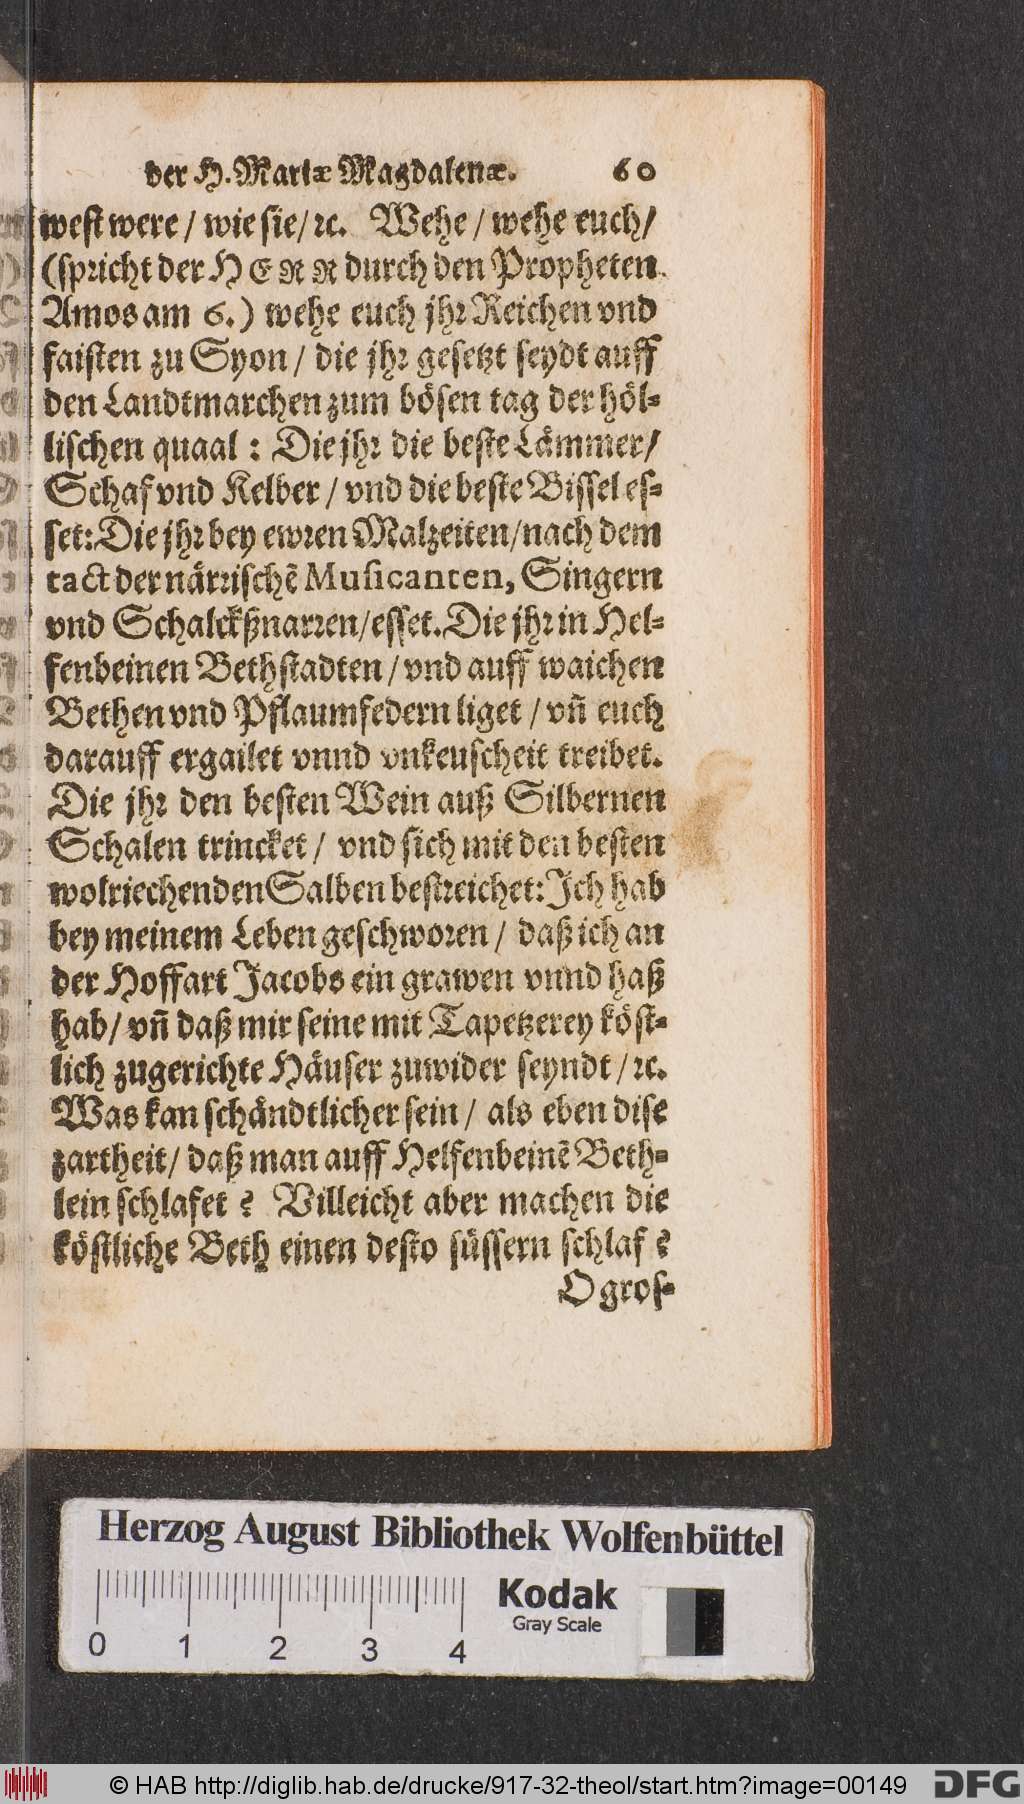 der H. Mariæ Magdalenæ. 60
west were / wie sie / ꝛc. Wehe / wehe euch /
(spricht der HERR durch den Propheten
Amos am 6.) wehe euch jhr Reichen vnd
faisten zu Syon / die jhr gesetzt seydt auff
den Landtmarchen zum bösen tag der höl-
lischen quaal : Die jhr die beste Lämmer /
Schaf vnd Kelber / vnd die beste Bissel es-
set: Die jhr bey ewren Malzeiten / nach dem
tact der närrischẽ Musicanten, Singern
vnd Schalckßnarren / esset. Die jhr in Hel-
fenbeinen Bethstadten / vnd auff waichen
Bethen vnd Pflaumfedern liget / vñ euch
darauff ergailet vnnd vnkeuscheit treibet.
Die jhr den besten Wein auß Silbernen
Schalen trincket / vnd sich mit den besten
wolriechenden Salben bestreichet: Ich hab
bey meinem Leben geschworen / daß ich an
der Hoffart Jacobs ein grawen vnnd haß
hab / vñ daß mir seine mit Tapetzerey köst-
lich zugerichte Häuser zuwider seyndt / ꝛc.
Was kan schändtlicher sein / als eben dise
zartheit / daß man auff Helfenbeinẽ Beth-
lein schlafet ? Villeicht aber machen die
köstliche Beth einen desto süssern schlaf ?
O gros-
Herzog August Bibliothek Wolfenbüttel
Kodak
Gray Scale
0 1 2 3 4
© HAB http://diglib.hab.de/drucke/917-32-theol/start.htm?image=00149 DFG